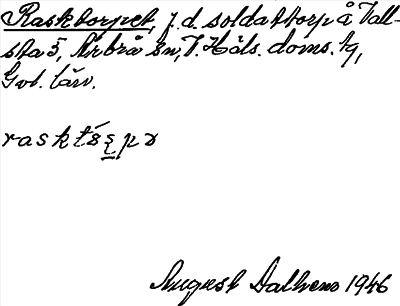 Rasktorpet, f.d. soldattorp å Vall-
sta 5, Arbrå sn, V. Häls. doms. tg,
Gvl. län.
raskt
August Dalhem 1946